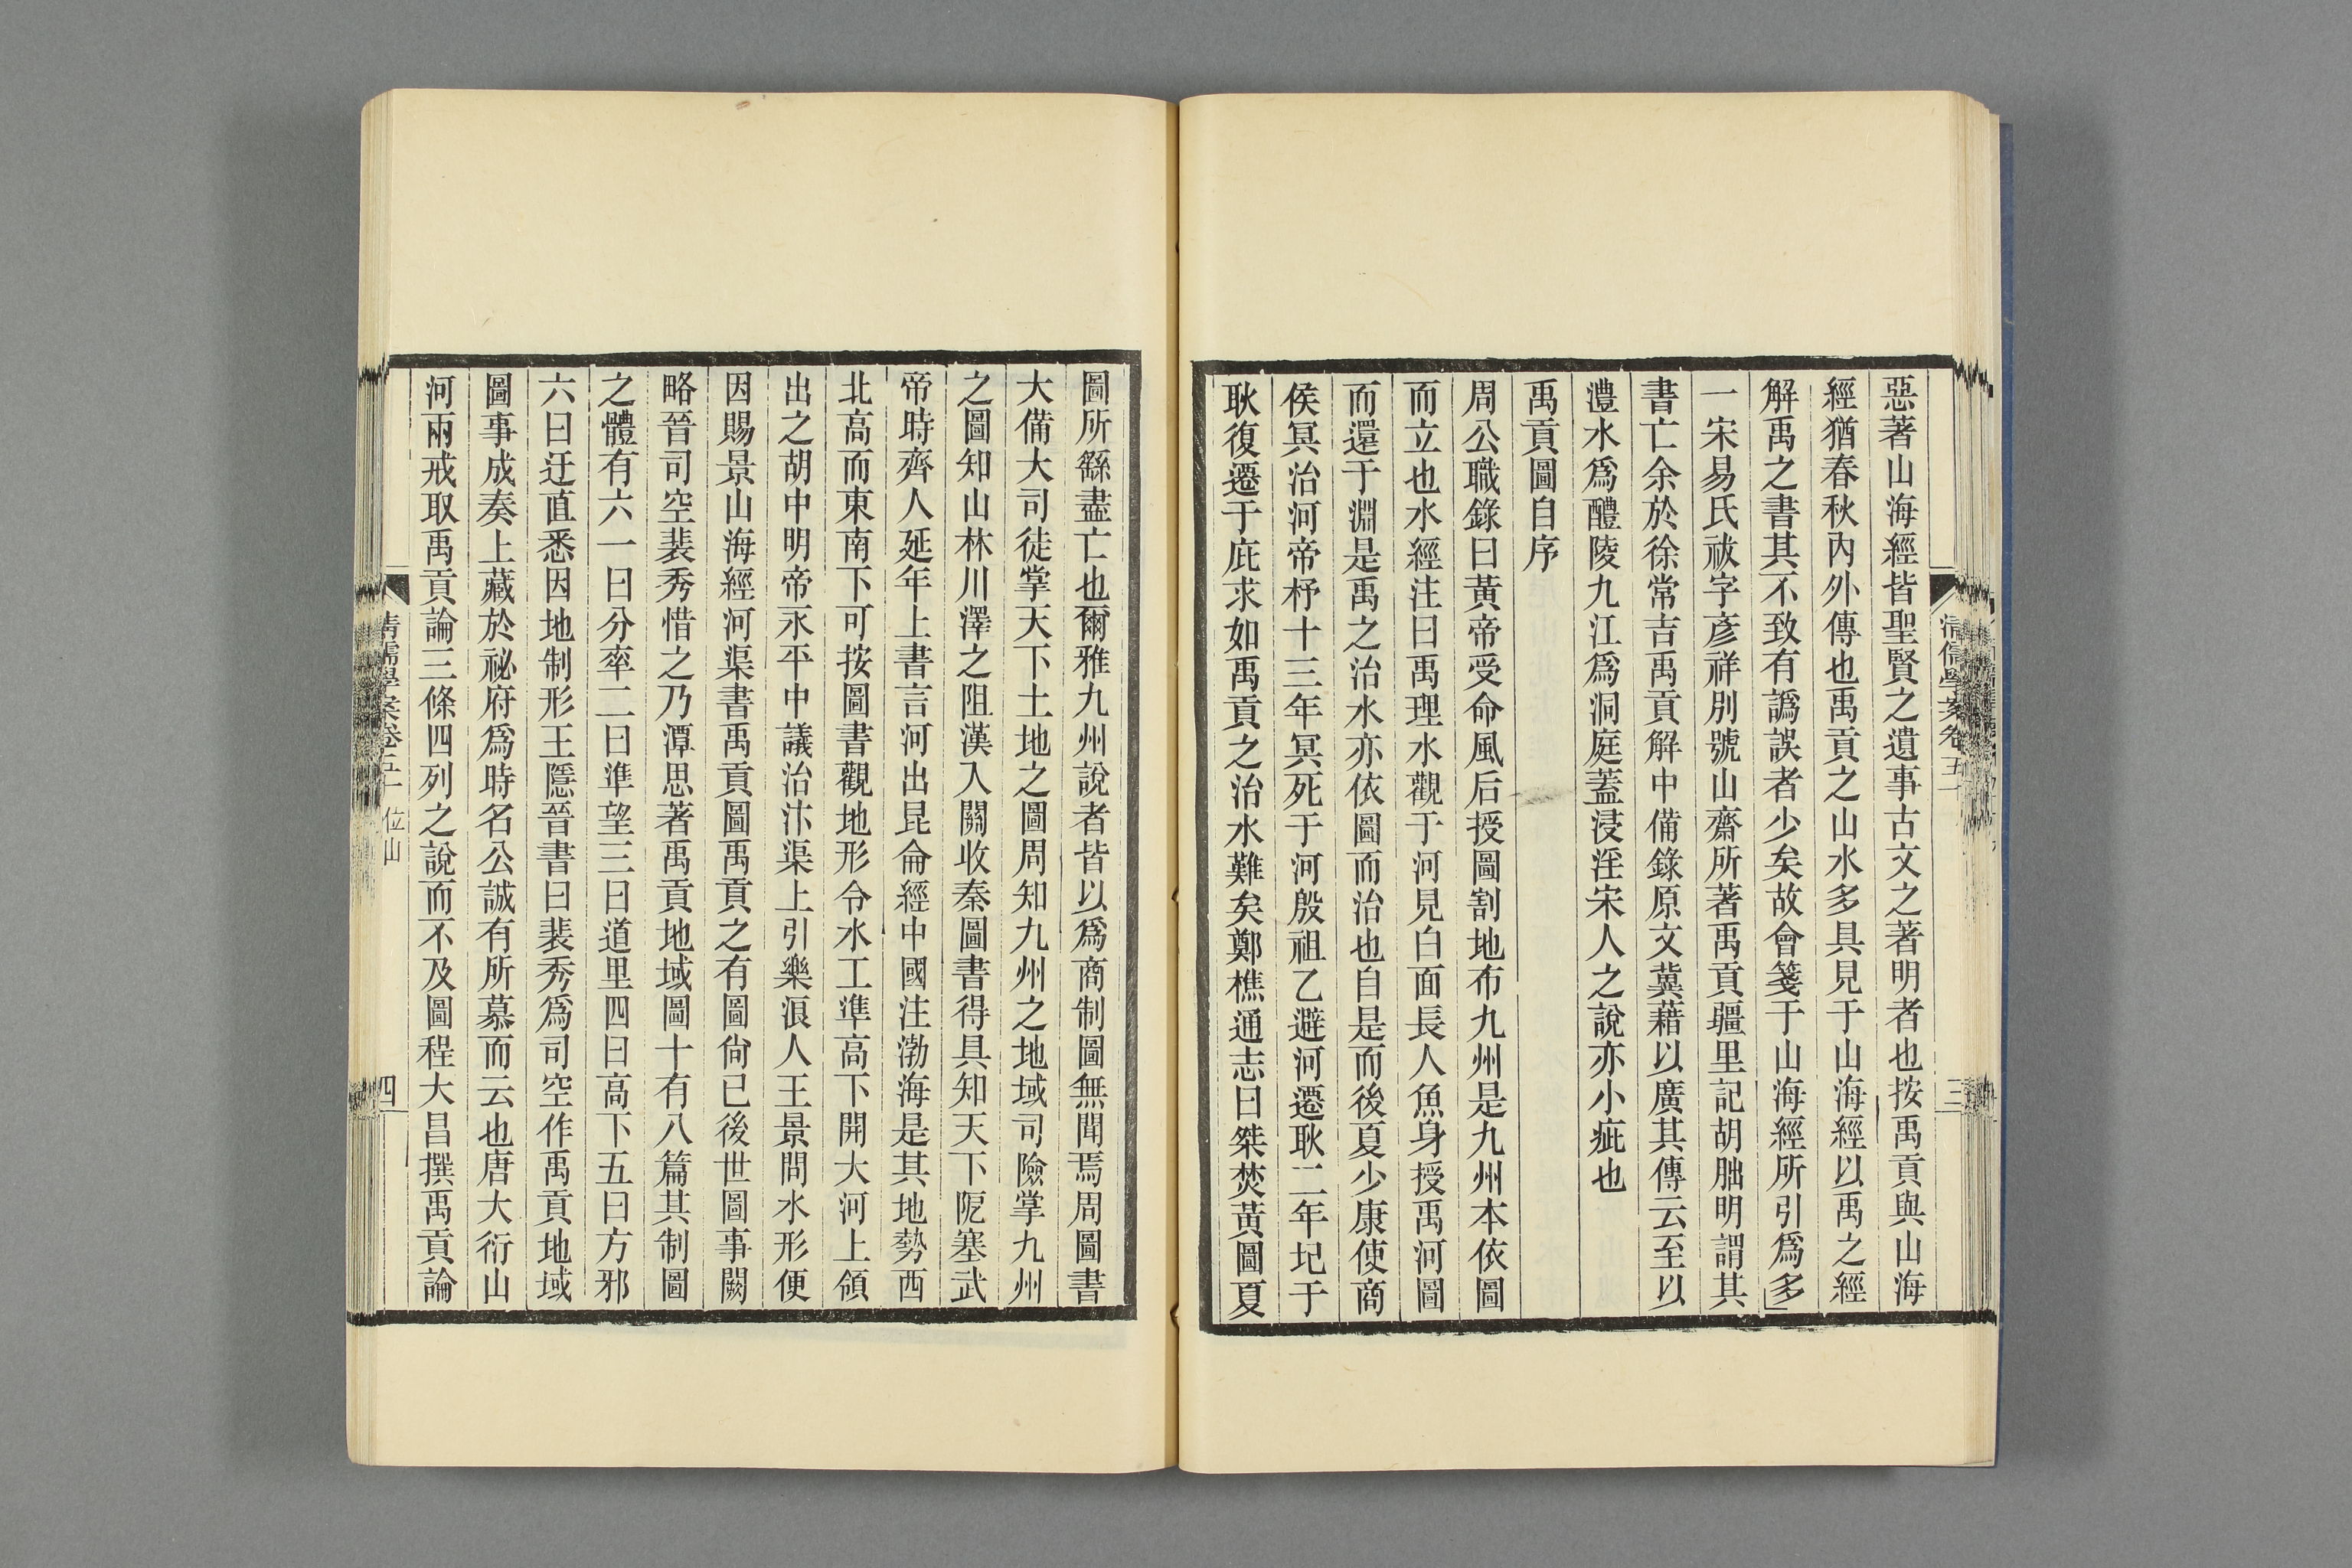 惡著山海經皆聖賢之遺事古文之著明者也按禹貢與山海
經猶春秋內外傳也禹貢之山水多具見于山海經以禹之經
解禹之書其不致有譌誤者少矣故會箋于山海經所引爲多
一宋易氏祓字彥祥別號山齋所著禹貢疆里記胡朏明謂其
書亡余於徐常吉禹貢解中備錄原文冀藉以廣其傳云至以
澧水爲醴陵九江爲洞庭蓋浸淫宋人之說亦小疵也
禹貢圖自序
周公職錄曰黃帝受命風后授圖割地布九州是九州本依圖
而立也水經注曰禹理水觀于河見白面長人魚身授禹河圖
而還于淵是禹之治水亦依圖而治也自是而後夏少康使商
侯冥治河帝杼十三年冥死于河殷祖乙避河遷耿二年圮于
耿復遷于庇求如禹貢之治水難矣鄭樵通志曰桀焚黃圖夏
圖所繇盡亡也爾雅九州說者皆以爲商制圖無聞焉周圖書
大備大司徒掌天下土地之圖周知九州之地域司險掌九州
之圖知山林川澤之阻漢入關收秦圖書得具知天下阸塞武
帝時齊人延年上書言河出昆侖經中國注渤海是其地勢西
北高而東南下可按圖書觀地形令水工準高下開大河上領
出之胡中明帝永平中議治汴渠上引樂浪人王景問水形便
因賜景山海經河渠書禹貢圖禹貢之有圖尙已後世圖事闕
略晉司空裴秀惜之乃潭思著禹貢地域圖十有八篇其制圖
之體有六一曰分率二曰準望三曰道里四曰高下五曰方邪
六曰迂直悉因地制形王隱晉書曰裴秀爲司空作禹貢地域
圖事成奏上藏於祕府爲時名公誠有所慕而云也唐大衍山
河兩戒取禹貢論三條四列之說而不及圖程大昌撰禹貢論
清儒學案卷五十 位山
四